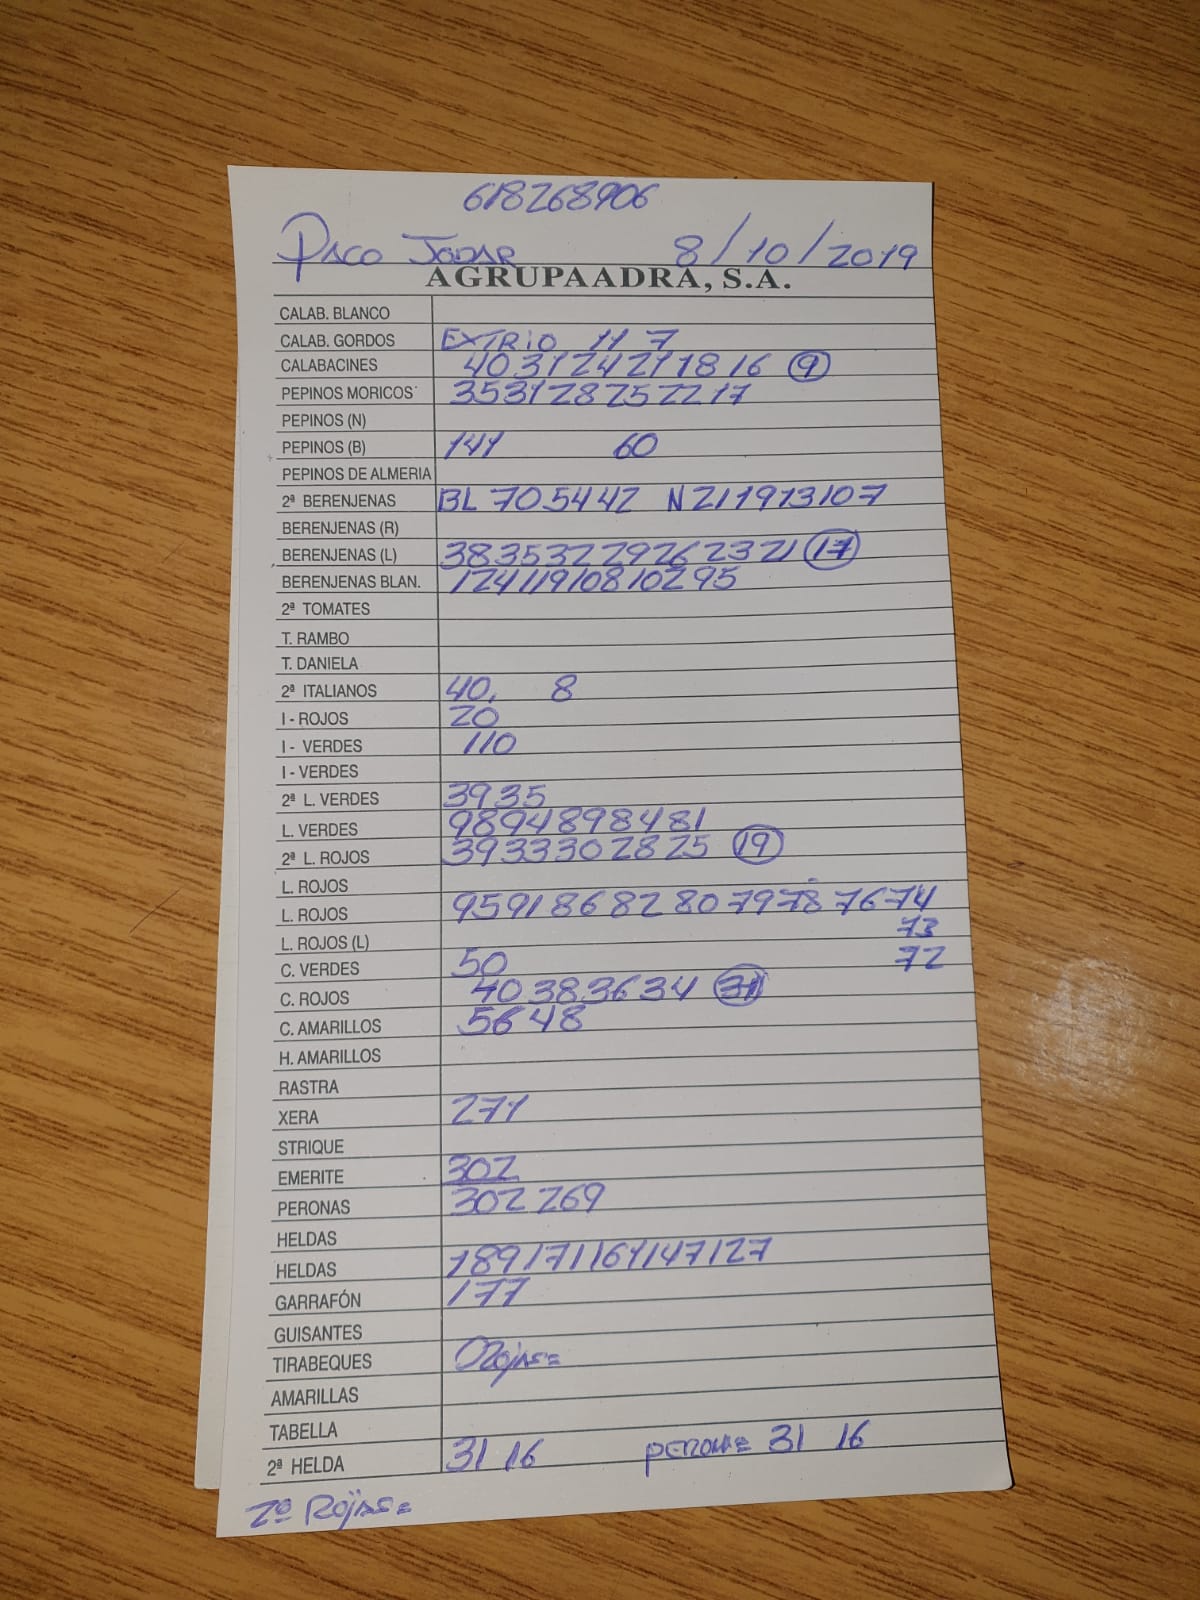 618268906
PACO JODAR 8/10/2019
AGRUPAADRA, S.A.
CALAB. BLANCO
CALAB. GORDOS EXTRIO 11 7
CALABACINES 40 31 24 21 18 16 9
PEPINOS MORICOS 35 31 28 25 22 17
PEPINOS (N)
PEPINOS (B) 141 60
PEPINOS DE ALMERIA
2ª BERENJENAS BL 70 54 42 N 21 19 13 10 7
BERENJENAS (R)
BERENJENAS (L) 38 35 32 29 26 23 21 17
BERENJENAS BLAN. 124 119 108 102 95
2ª TOMATES
T. RAMBO
T. DANIELA
2ª ITALIANOS 40. 8
I - ROJOS 20
I - VERDES 110
I - VERDES
2ª L. VERDES 39 35
L. VERDES 98 94 89 84 81
2ª L. ROJOS 39 33 30 28 25 19
L. ROJOS
L. ROJOS 95 91 86 82 80 79 78 76 74
L. ROJOS (L) 73
C. VERDES 50 72
C. ROJOS 40 38 36 34 31
C. AMARILLOS 56 48
H. AMARILLOS
RASTRA
XERA 271
STRIQUE
EMERITE 302
PERONAS 302 269
HELDAS
HELDAS 189 171 161 147 127
GARRAFÓN 177
GUISANTES
TIRABEQUES
AMARILLAS
TABELLA
2ª HELDA 31 16 PERONA= 31 16
2º ROJAS=